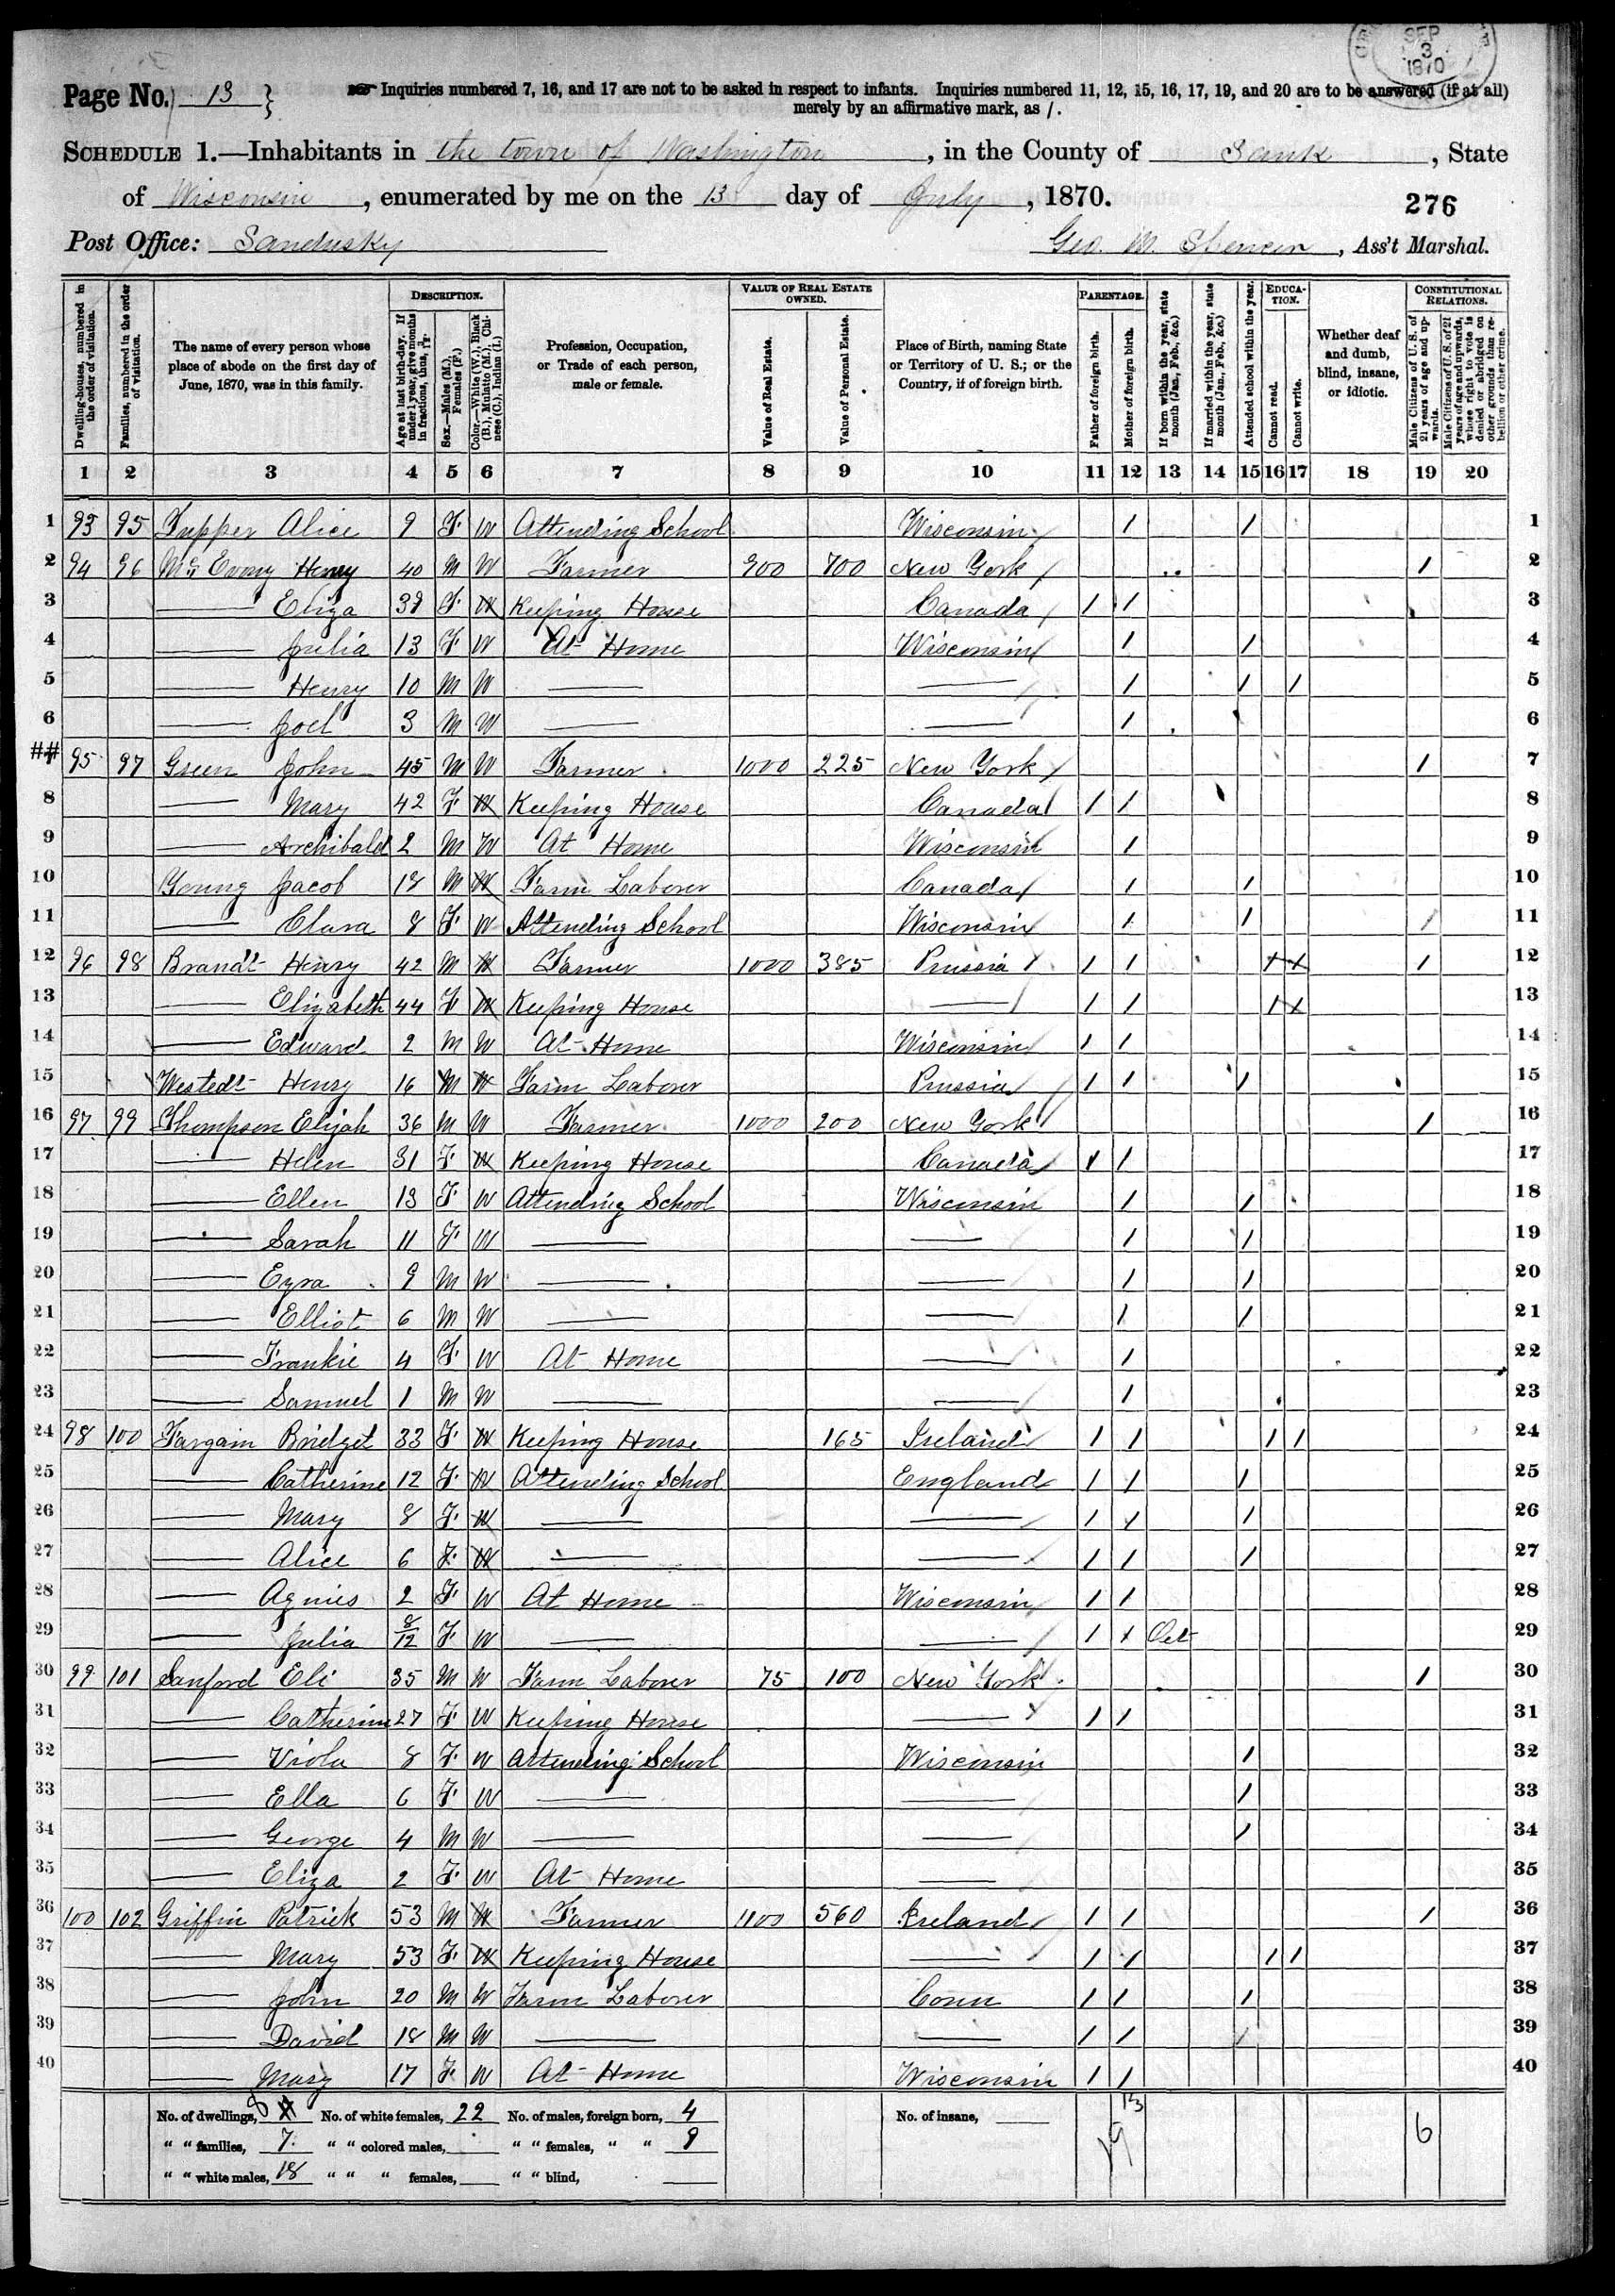 SEP
3
1870
Page No. 13 } Inquiries numbered 7, 16, and 17 are not to be asked in respect to infants. Inquiries numbered 11, 12, 15, 16, 17, 19, and 20 are to be answered (if at all)
merely by an affirmative mark, as /.
SCHEDULE 1.—Inhabitants in the town of Washington, in the County of Sauk, State
of Wisconsin, enumerated by me on the 13 day of July, 1870.
276
Post Office: Sandusky Geo. M. Spencer, Ass't Marshal.
Dwelling-houses, numbered in the order of visitation.
Families, numbered in the order of visitation.
The name of every person whose place of abode on the first day of June, 1870, was in this family.
DESCRIPTION.
Age at last birth-day. If under 1 year, give months in fractions, thus, 3/12.
Sex.—Males (M.), Females (F.)
Color.—White (W.), Black (B.), Mulatto (M.), Chinese (C.), Indian (I.)
Profession, Occupation, or Trade of each person, male or female.
VALUE OF REAL ESTATE OWNED.
Value of Real Estate.
Value of Personal Estate.
Place of Birth, naming State or Territory of U. S.; or the Country, if of foreign birth.
PARENTAGE.
Father of foreign birth.
Mother of foreign birth.
If born within the year, state month (Jan., Feb., &c.)
If married within the year, state month (Jan., Feb., &c.)
Attended school within the year.
EDUCATION.
Cannot read.
Cannot write.
Whether deaf and dumb, blind, insane, or idiotic.
CONSTITUTIONAL RELATIONS.
Male Citizens of U. S. of 21 years of age and upwards.
Male Citizens of U. S. of 21 years of age and upwards, whose right to vote is denied or abridged on other grounds than rebellion or other crime.
1 2 3 4 5 6 7 8 9 10 11 12 13 14 15 16 17 18 19 20
1 93 95 Tupper Alice 9 F W Attending School Wisconsin / / 1
2 94 96 Henry 40 M W Farmer 900 700 New York / 2
3 — Eliza 39 F W Keeping House Canada / / 3
4 — Julia 13 F W At Home Wisconsin / / 4
5 — Henry 10 M W — — / / / 5
6 — Joel 3 M W — — / 6
## 95 97 Green John 45 M W Farmer 1000 225 New York / 7
8 — Mary 42 F W Keeping House Canada / / 8
9 — Archibald 2 M W At Home Wisconsin / 9
10 Young Jacob 18 M W Farm Laborer Canada / / 10
11 — Clara 8 F W Attending School Wisconsin / / / 11
12 96 98 Brandt Henry 42 M W Farmer 1000 385 Prussia / / / / / 12
13 — Elizabeth 44 F W Keeping House — / / / / 13
14 — Edward 2 M W At Home Wisconsin / / 14
15 Westedt Henry 16 M W Farm Laborer Prussia / / / 15
16 97 99 Thompson Elijah 36 M W Farmer 1000 200 New York / 16
17 — Helen 31 F W Keeping House Canada / / 17
18 — Ellen 13 F W Attending School Wisconsin / / 18
19 — Sarah 11 F W — — / / 19
20 — Ezra 9 M W — — / / 20
21 — Elliot 6 M W — — / / 21
22 — Frankie 4 F W At Home — / 22
23 — Samuel 1 M W — — / 23
24 98 100 Fargain Bridget 33 F W Keeping House 165 Ireland / / / / 24
25 — Catherine 12 F W Attending School England / / / 25
26 — Mary 8 F W — — / / / 26
27 — Alice 6 F W — — / / / 27
28 — Agnies 2 F W At Home Wisconsin / / 28
29 — Julia 8/12 F W — — / / Oct 29
30 99 101 Sanford Eli 35 M W Farm Laborer 75 100 New York / 30
31 — Catherine 27 F W Keeping House — / / 31
32 — Viola 8 F W Attending School Wisconsin / 32
33 — Ella 6 F W — — / 33
34 — George 4 M W — — / 34
35 — Eliza 2 F W At Home — 35
36 100 102 Griffin Patrick 53 M W Farmer 1100 560 Ireland / / / 36
37 — Mary 53 F W Keeping House — / / / / 37
38 — John 20 M W Farm Laborer Conn / / / 38
39 — David 18 M W — — / / / 39
40 — Mary 17 F W At Home Wisconsin / / 40
No. of dwellings, 8 No. of white females, 22 No. of males, foreign born, 4 No. of insane, 19 6
" " families, 7 " " colored males, " " females, " " 9
" " white males, 18 " " " females, " " blind,